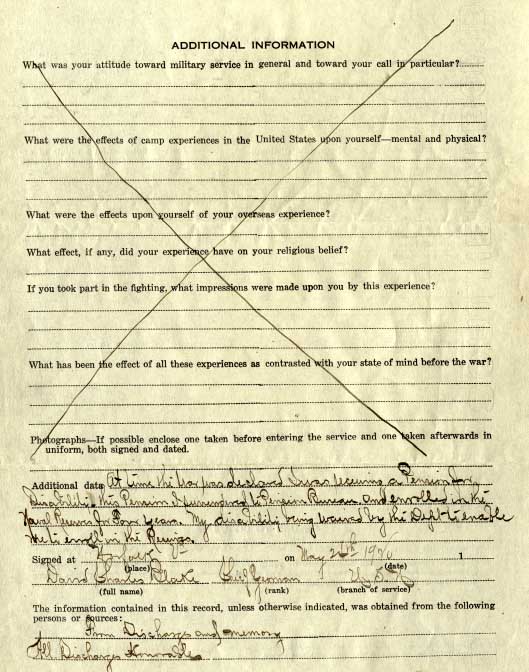 ADDITIONAL INFORMATION
What was your attitude toward military service in general and toward your call in particular?
What were the effects of camp experiences in the United States upon yourself—mental and physical?
What were the effects upon yourself of your overseas experience?
What effect, if any, did your experience have on your religious belief?
If you took part in the fighting, what impressions were made upon you by this experience?
What has been the effect of all these experiences as contrasted with your state of mind before the war?
Photographs—If possible enclose one taken before entering the service and one taken afterwards in
uniform, both signed and dated.
Additional data At time the War was declared I was receiving a Pension for
Disability this Pension I surrendered to Pension Bureau and enrolled in the
Naval Reserves for Four Years. My disability being waived by the Dept to enable
me to enroll in the Reserves.
Signed at Norfolk on May 1920 1
(place) (date)
David Charles Chief Yeoman U. S. N.
(full name) (rank) (branch of service)
The information contained in this record, unless otherwise indicated, was obtained from the following
persons or sources:
From Discharges and memory
All Discharges Honorable